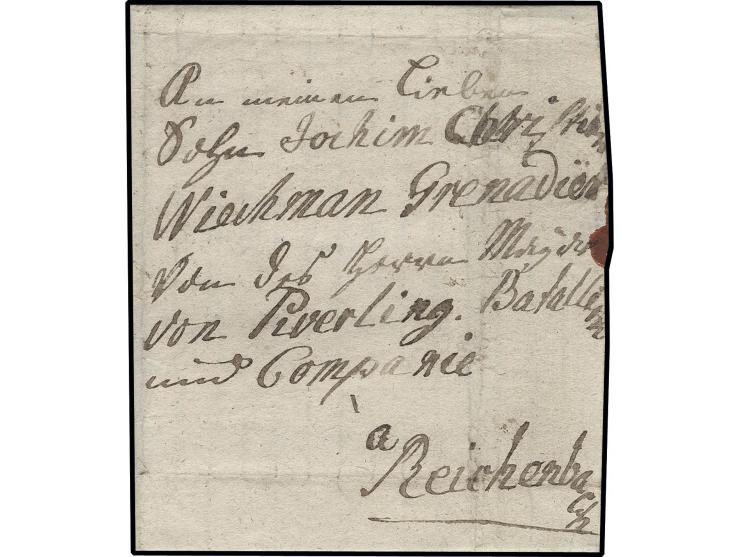 An meinen Lieben
Sohn Jochim Christian
Wiechman Grenadier
von des Herrn Major
von Piverling. Batallion
und Companie
a
Reichenbach